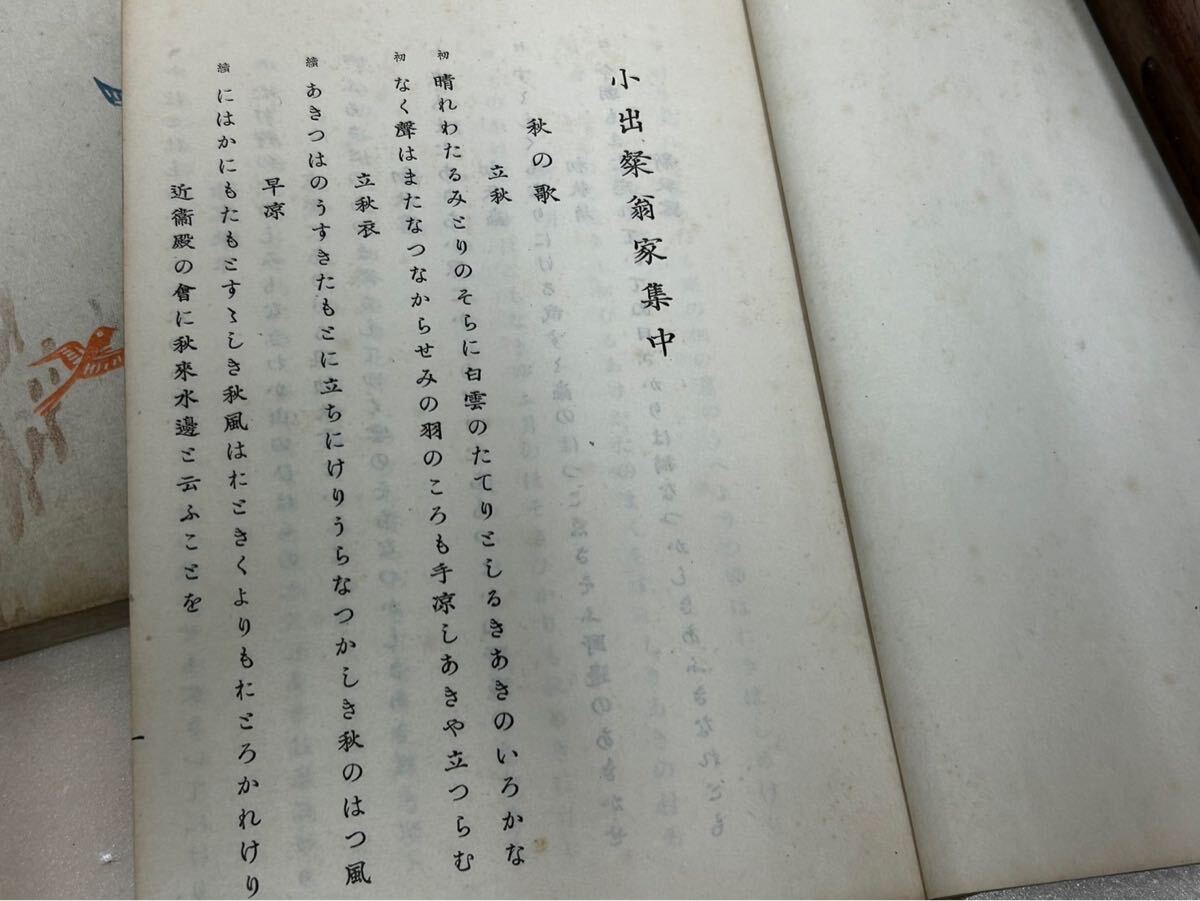 小出粲翁家集中
秋の歌
立秋
初 晴れわたるみとりのそらに白雲のたてりとしるきあきのいろかな
初 なく聲はまたなつなからせみの羽のころも手凉しあきや立つらむ
立秋衣
續 あきつはのうすきたもとに立ちにけりうらなつかしき秋のはつ風
早凉
續 にはかにもたもとすゝしき秋風はおときくよりもおとろかれけり
近衞殿の會に秋來水邊と云ふことを